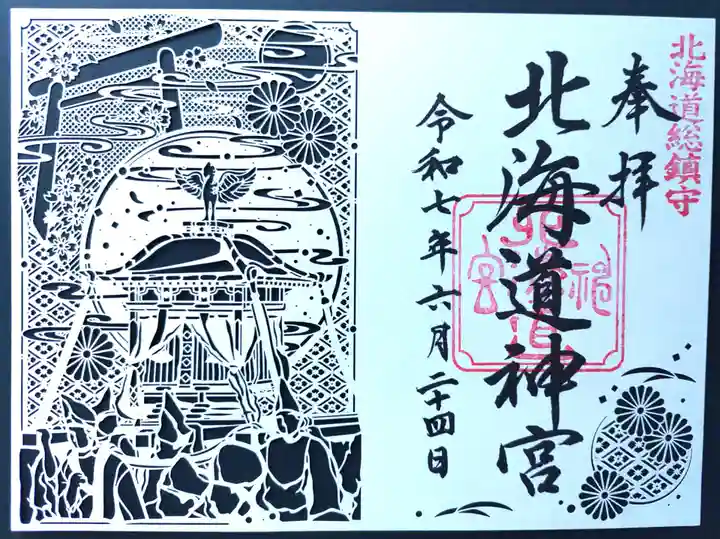 北海道総鎮守
奉拝
北海道神宮
令和七年六月二十四日